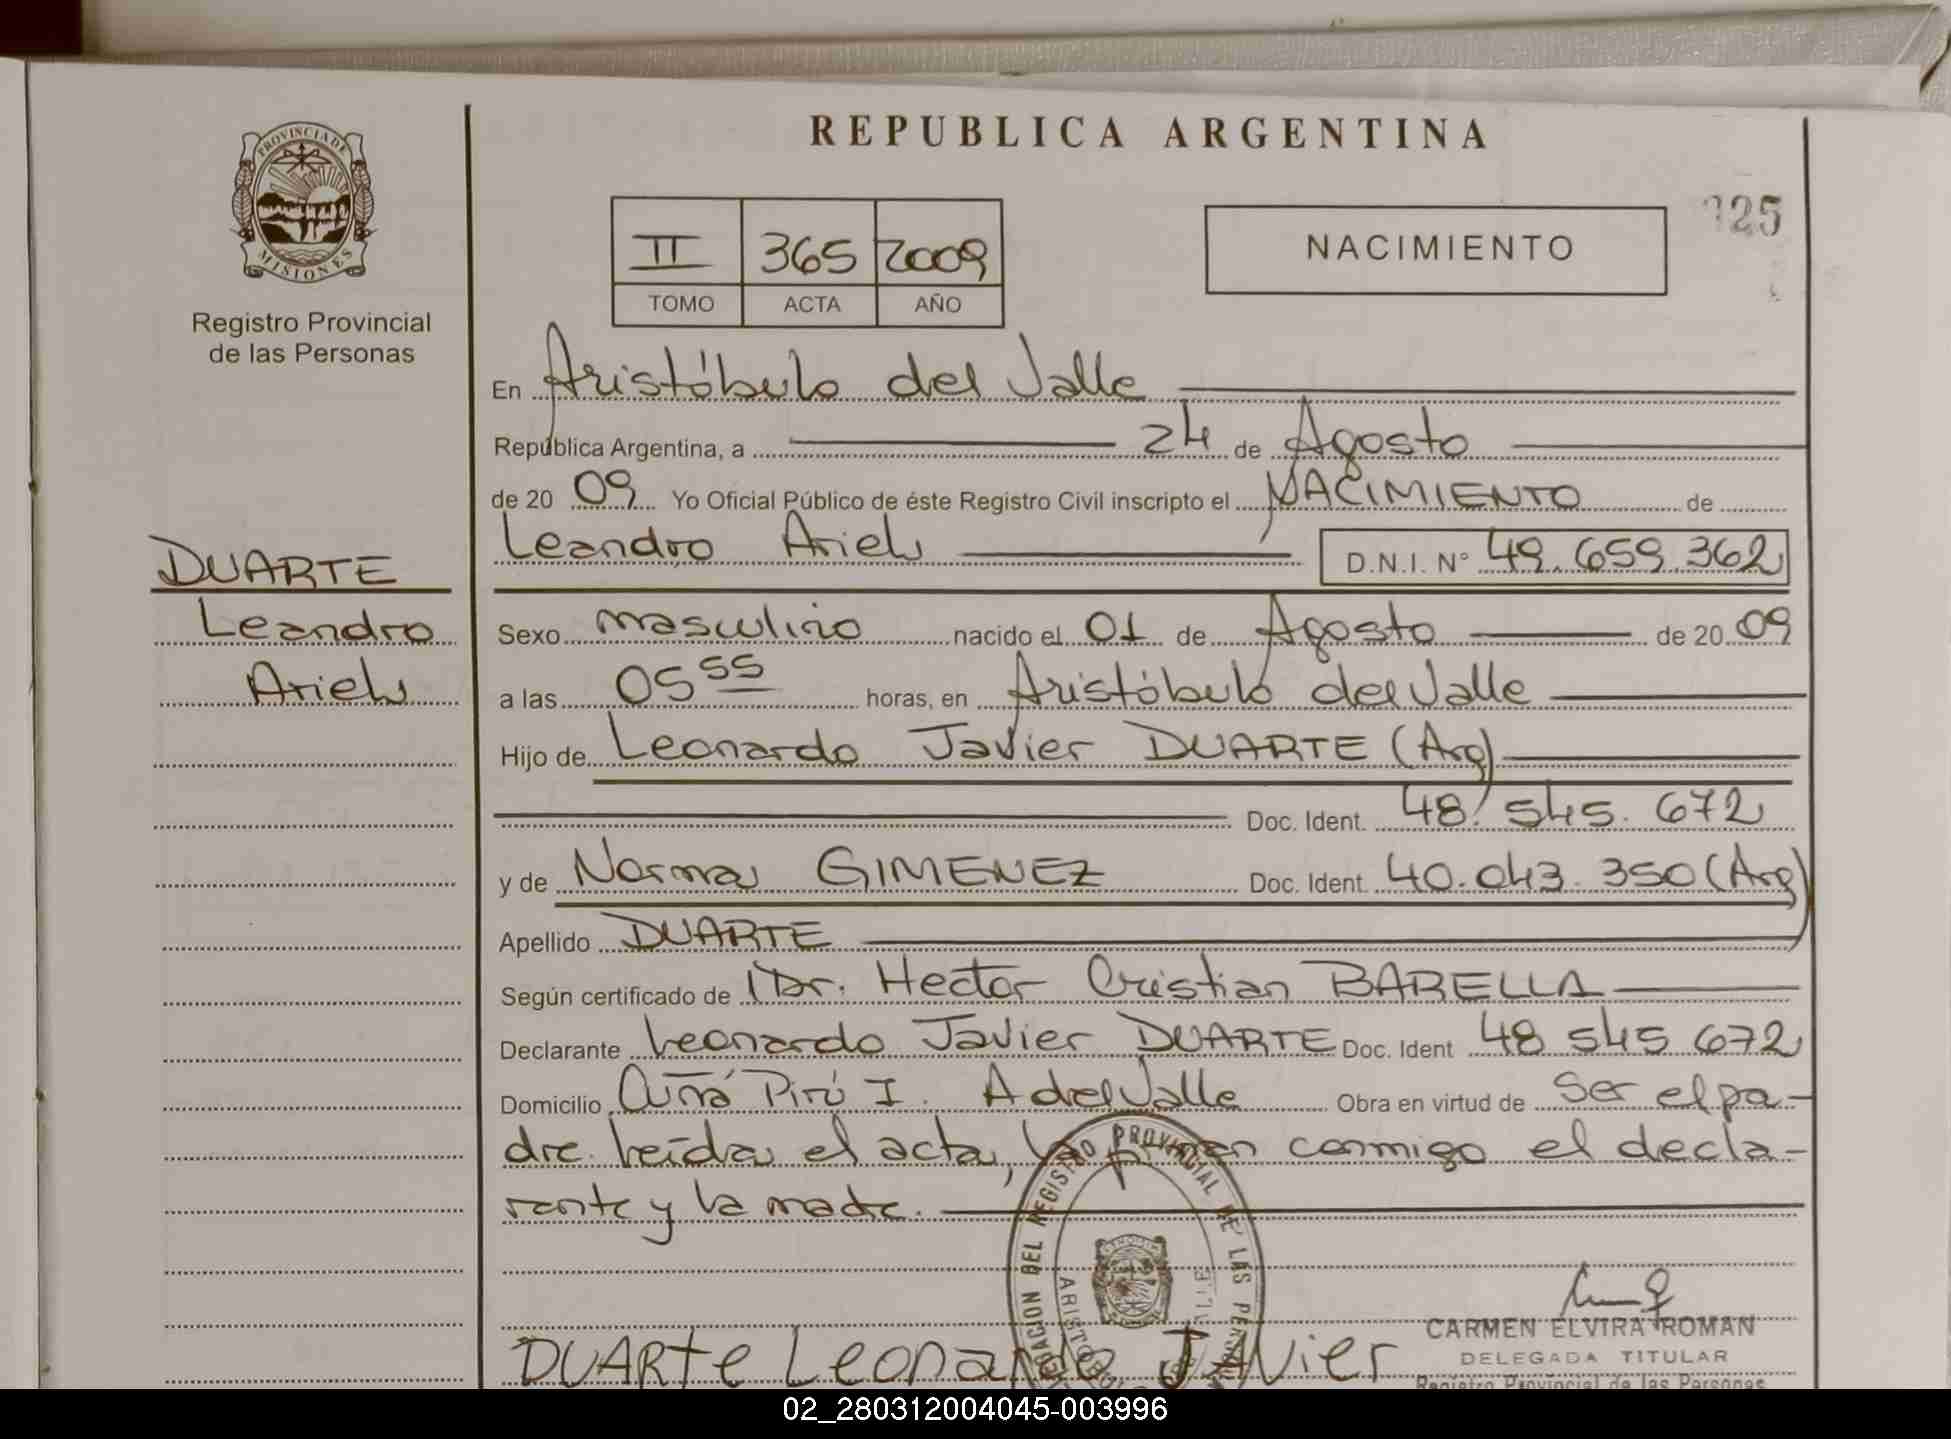 PROVINCIA DE
MISIONES
Registro Provincial
de las Personas
REPUBLICA ARGENTINA
II 365 2009
TOMO ACTA AÑO
NACIMIENTO
125
En Aristóbulo del Valle
República Argentina, a 24 de Agosto
de 20 09 Yo Oficial Público de éste Registro Civil inscripto el NACIMIENTO de
Leandro Ariel D.N.I. N° 49.659.362
DUARTE
Leandro
Ariel
Sexo masculino nacido el 01 de Agosto de 20 09
a las 05 55 horas, en Aristóbulo del Valle
Hijo de Leonardo Javier DUARTE (Arg)
Doc. Ident. 48.545.672
y de Norma GIMENEZ Doc. Ident. 40.043.350 (Arg)
Apellido DUARTE
Según certificado de Dr. Hector Cristian BARELLA
Declarante Leonardo Javier DUARTE Doc. Ident 48 545 672
Domicilio Cuñá Pirú I. A del Valle Obra en virtud de Ser el pa-
dre. Leída el acta, la firman conmigo el decla-
rante y la madre.
DUARTE Leonardo JAVier
CARMEN ELVIRA ROMAN
DELEGADA TITULAR
Registro Provincial de las Personas
02_280312004045-003996